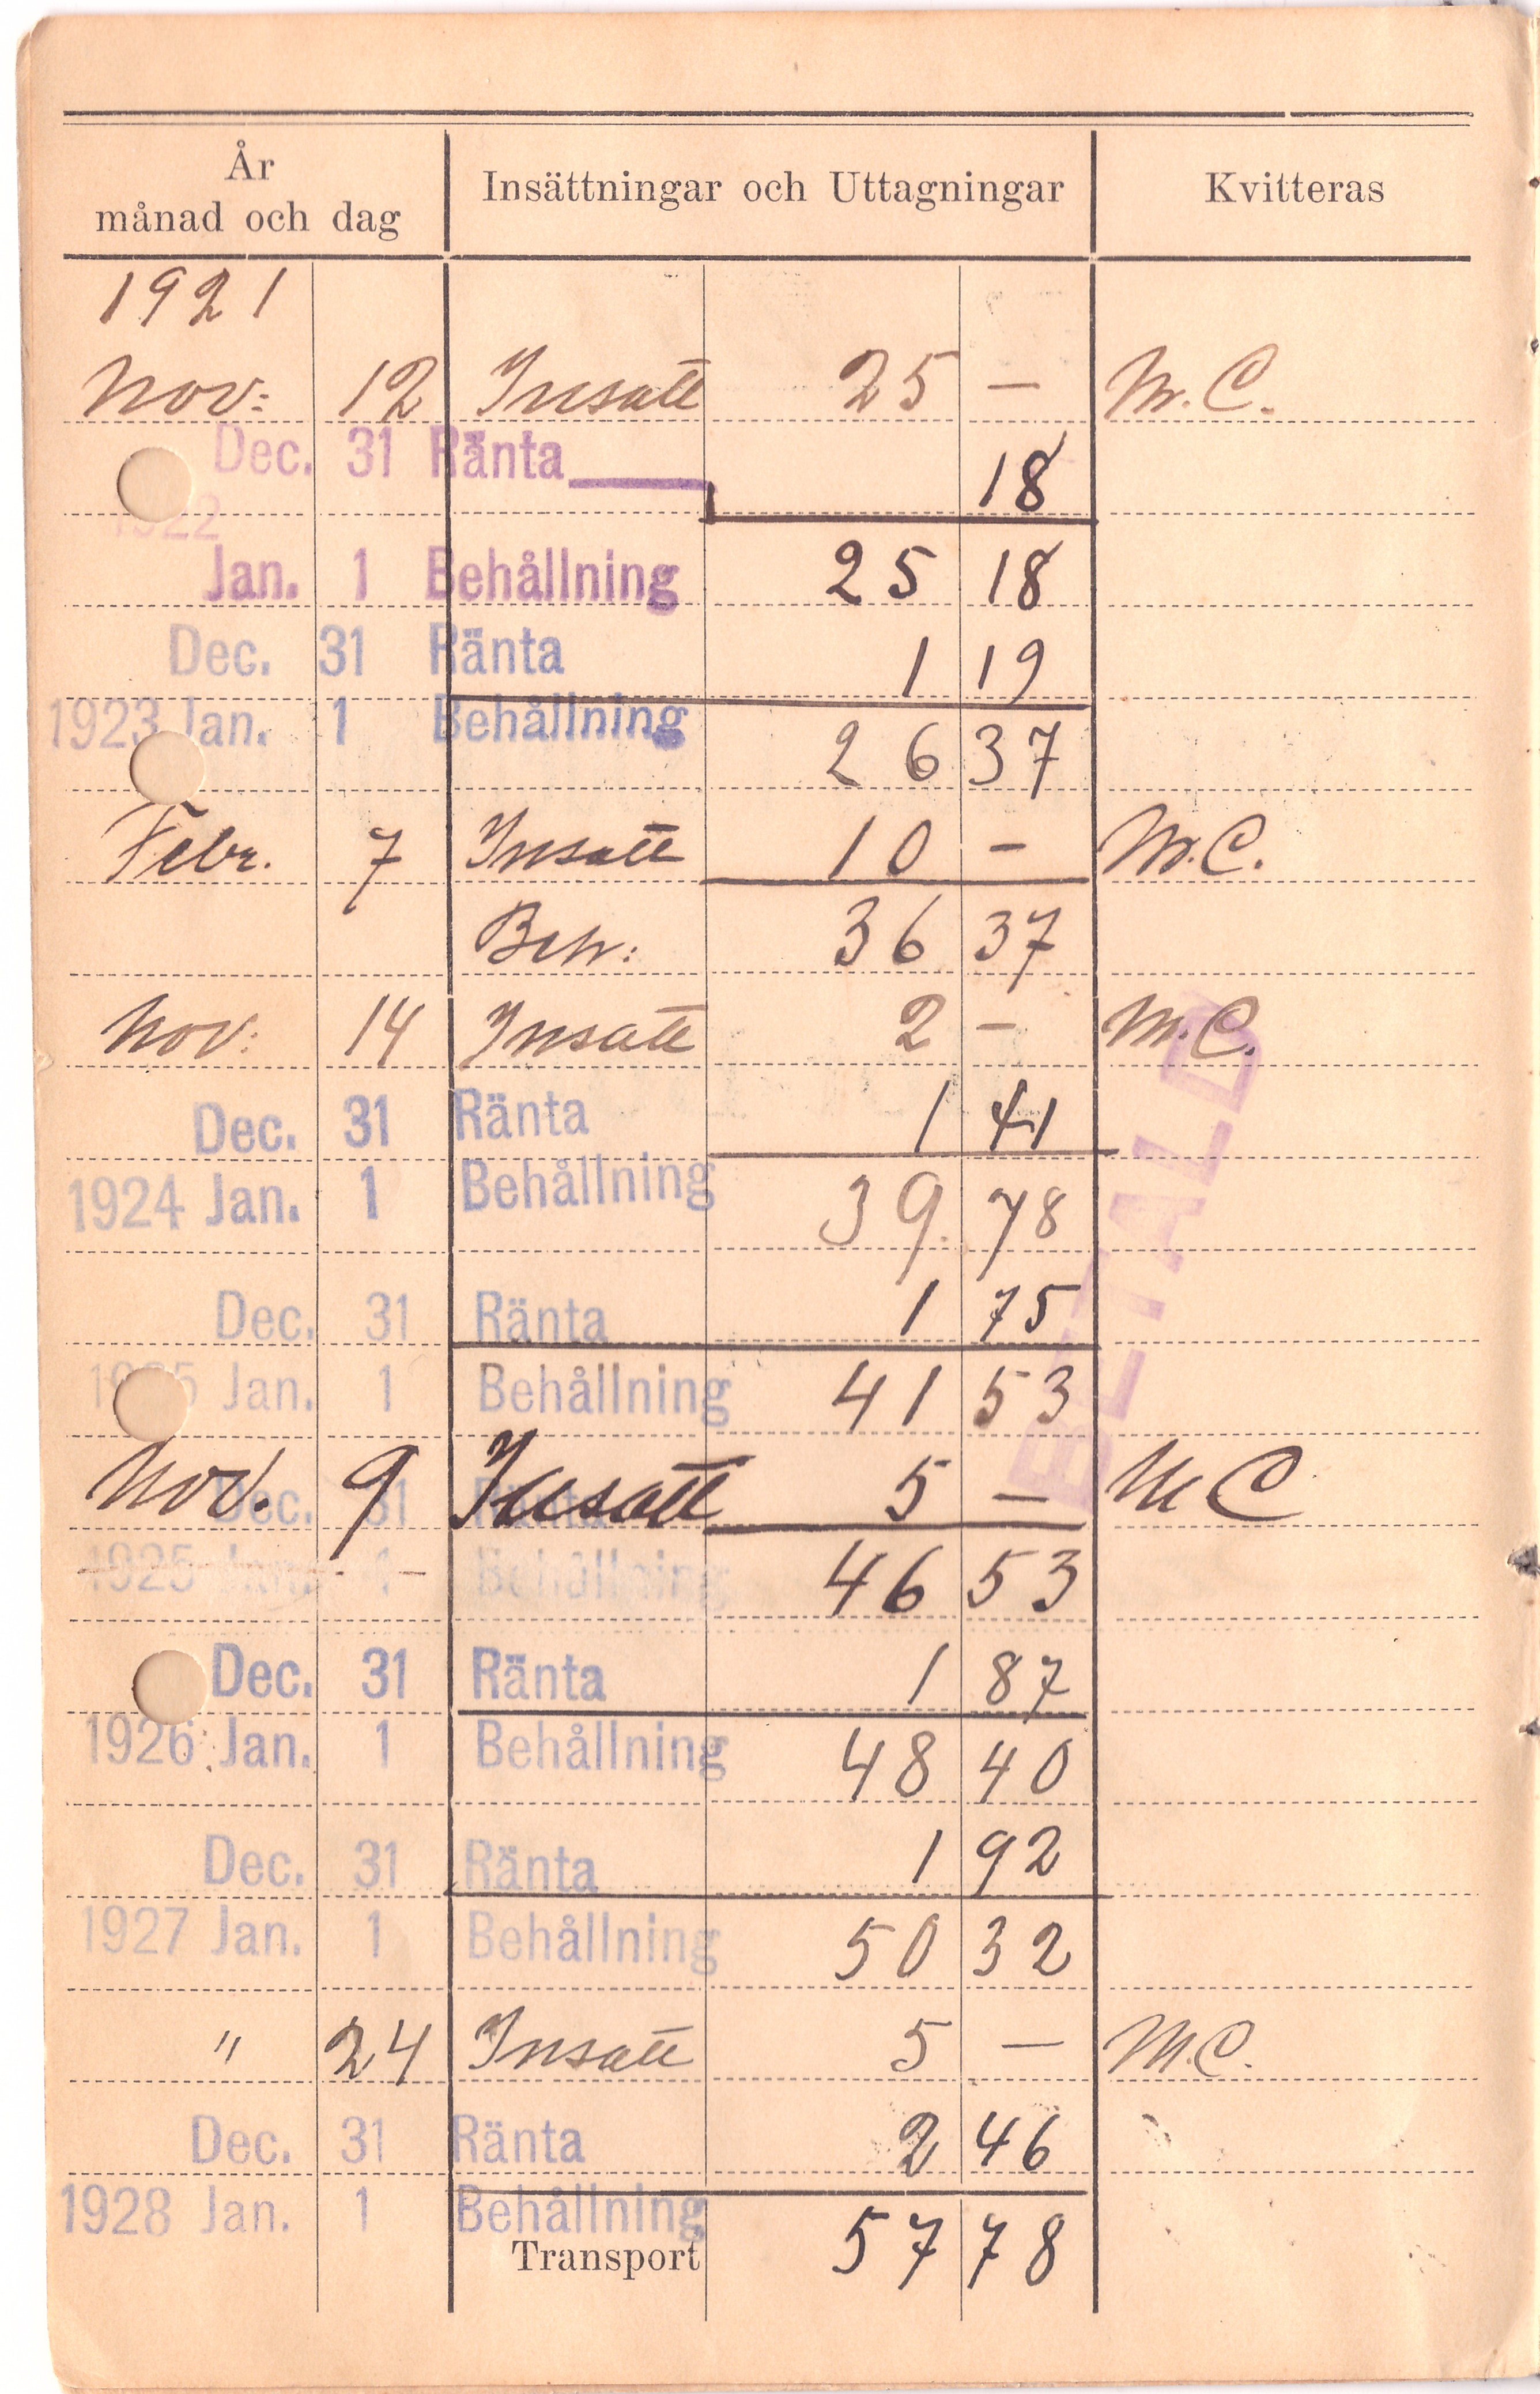 År
månad och dag
Insättningar och Uttagningar
Kvitteras
1921
Nov: 12 Insatt 25 — M.C.
Dec. 31 Ränta 18
1922
Jan. 1 Behållning 25 18
Dec. 31 Ränta 1 19
1923 Jan. 1 Behållning 26 37
Febr. 7 Insatt 10 — M.C.
Beh: 36 37
Nov: 14 Insatt 2 — M.C.
Dec. 31 Ränta 1 41
1924 Jan. 1 Behållning 39. 78
Dec. 31 Ränta 1 75
1925 Jan. 1 Behållning 41 53
Dec. 31 Ränta
Nov. 9 Insatt 5 — M C
1925 Jan. 1 Behållning 46 53
Dec. 31 Ränta 1 87
1926 Jan. 1 Behållning 48 40
Dec. 31 Ränta 1 92
1927 Jan. 1 Behållning 50 32
" 24 Insatt 5 — M.C.
Dec. 31 Ränta 2 46
1928 Jan. 1 Behållning
Transport 57 78
BETALD